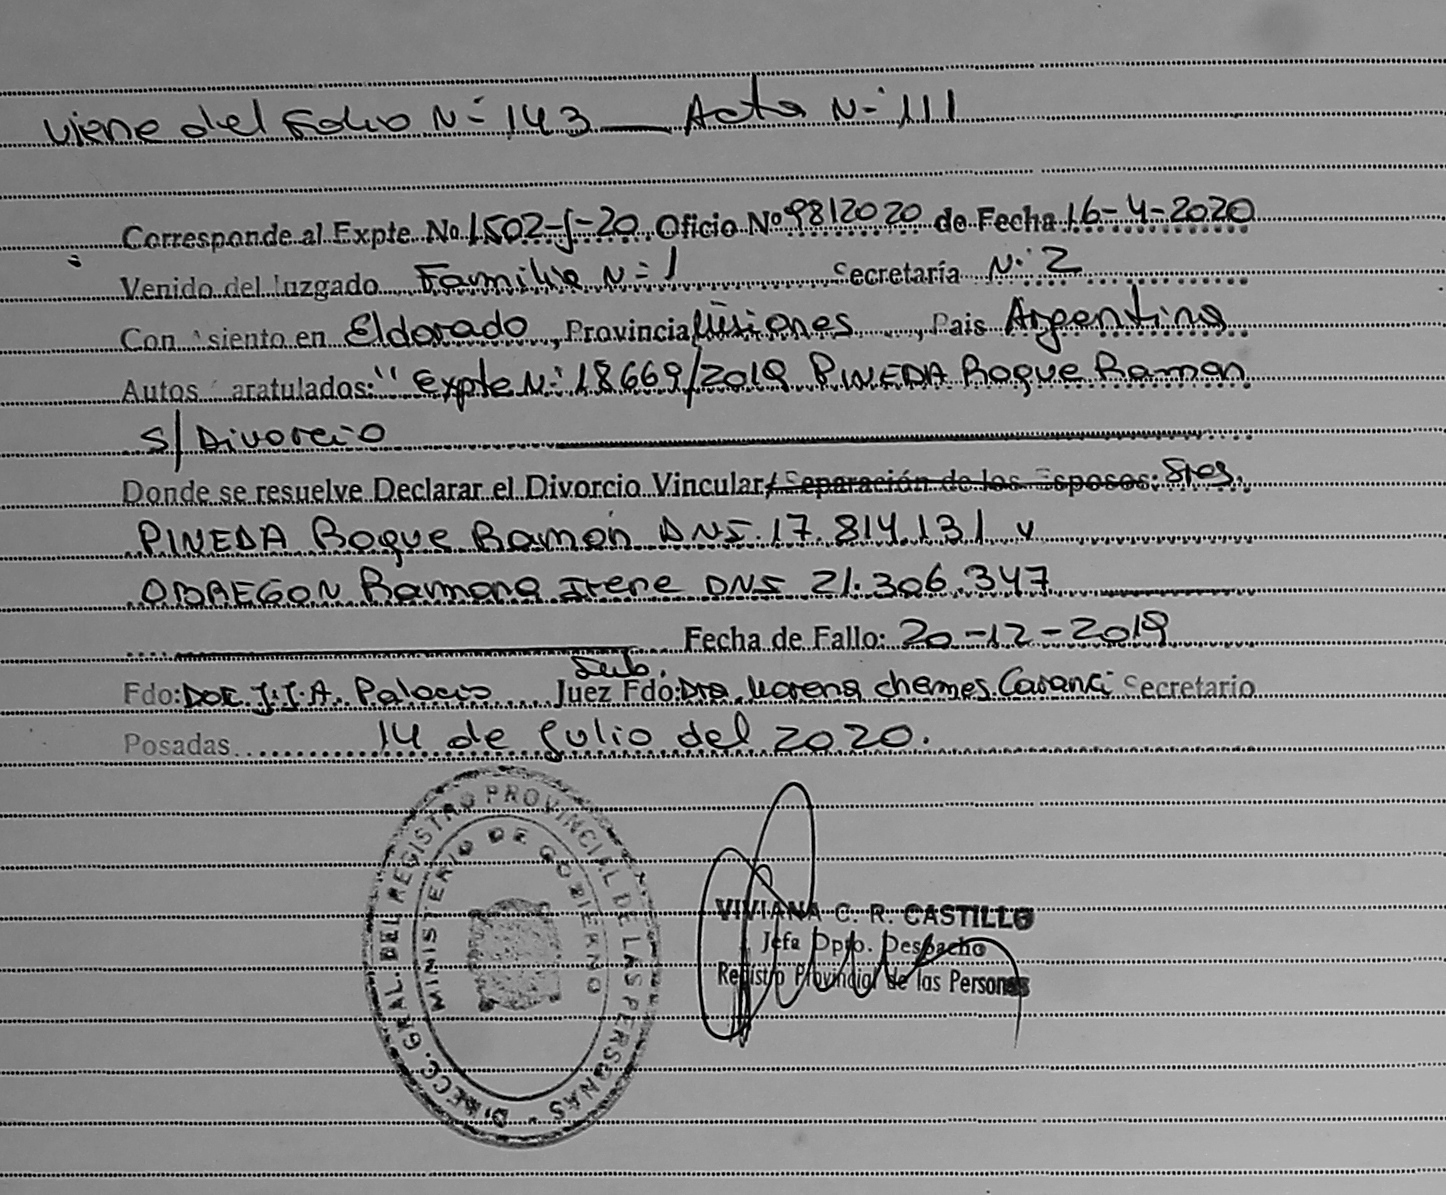 viene del Folio N=143 — Acta N=111
Corresponde al Expte. No 1502-J-20 Oficio Nº 9812020 de Fecha 16-4-2020
Venido del Juzgado Familia N=1 Secretaría N=2
Con Asiento en Eldorado, Provincia Misiones, Pais Argentina
Autos Caratulados: "Expte N=18669/2019 PINEDA Roque Ramon
S/ Divorcio
Donde se resuelve Declarar el Divorcio Vincular/Separación de los Esposos: Sres.
PINEDA Roque Ramon DNI. 17.814.131 y
OBREGON Ramona Irene DNI 21.306.347
Fecha de Fallo: 20-12-2019
Sub.
Fdo: DOC. J.J.A. Palacio Juez Fdo: Dra. Lorena Chemes Secretario
Posadas 14 de Julio del 2020.
DIRECC. GRAL. DEL REGISTRO PROVINCIAL DE LAS PERSONAS
MINISTERIO DE GOBIERNO
VIVIANA C. R. CASTILLO
Jefa Dpto. Despacho
Registro Provincial de las Personas